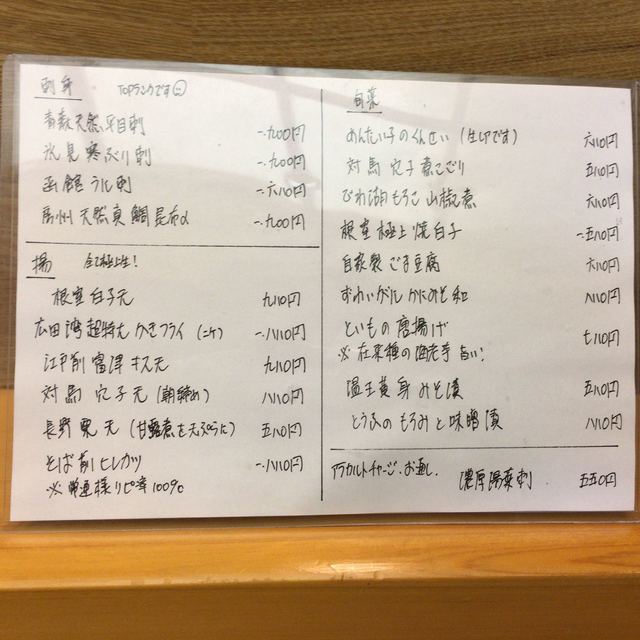 刺身 TOPランクです
青森天然平目刺 一.九〇〇円
氷見寒ぶり刺 一.九〇〇円
函館うに刺 一.六八〇円
房州天然真鯛昆布〆 一.九〇〇円
揚 全て極上生!
根室白子天 九八〇円
広田湾超特大かきフライ(二ケ) 一.八八〇円
江戸前富津キス天 九八〇円
対馬穴子天(朝締め) 八八〇円
長野栗天(甘露煮を天ぷらに) 五八〇円
そば前ヒレカツ 一.八八〇円
※常連様リピ率100%
旬菜
めんたい子のくんせい(生です) 六八〇円
対馬穴子煮こごり 五八〇円
びわ湖もろこ山椒煮 六八〇円
根室極上焼白子 一.五八〇円
自家製ごま豆腐 六八〇円
ずわいガニかにみそ和 八八〇円
といもの唐揚げ 七八〇円
※在来種の海老芋 旨い!
温玉黄身みそ漬 五八〇円
とうふのもろみと味噌漬 八八〇円
アラカルトチャージ.お通し.
濃厚湯葉刺 五五〇円